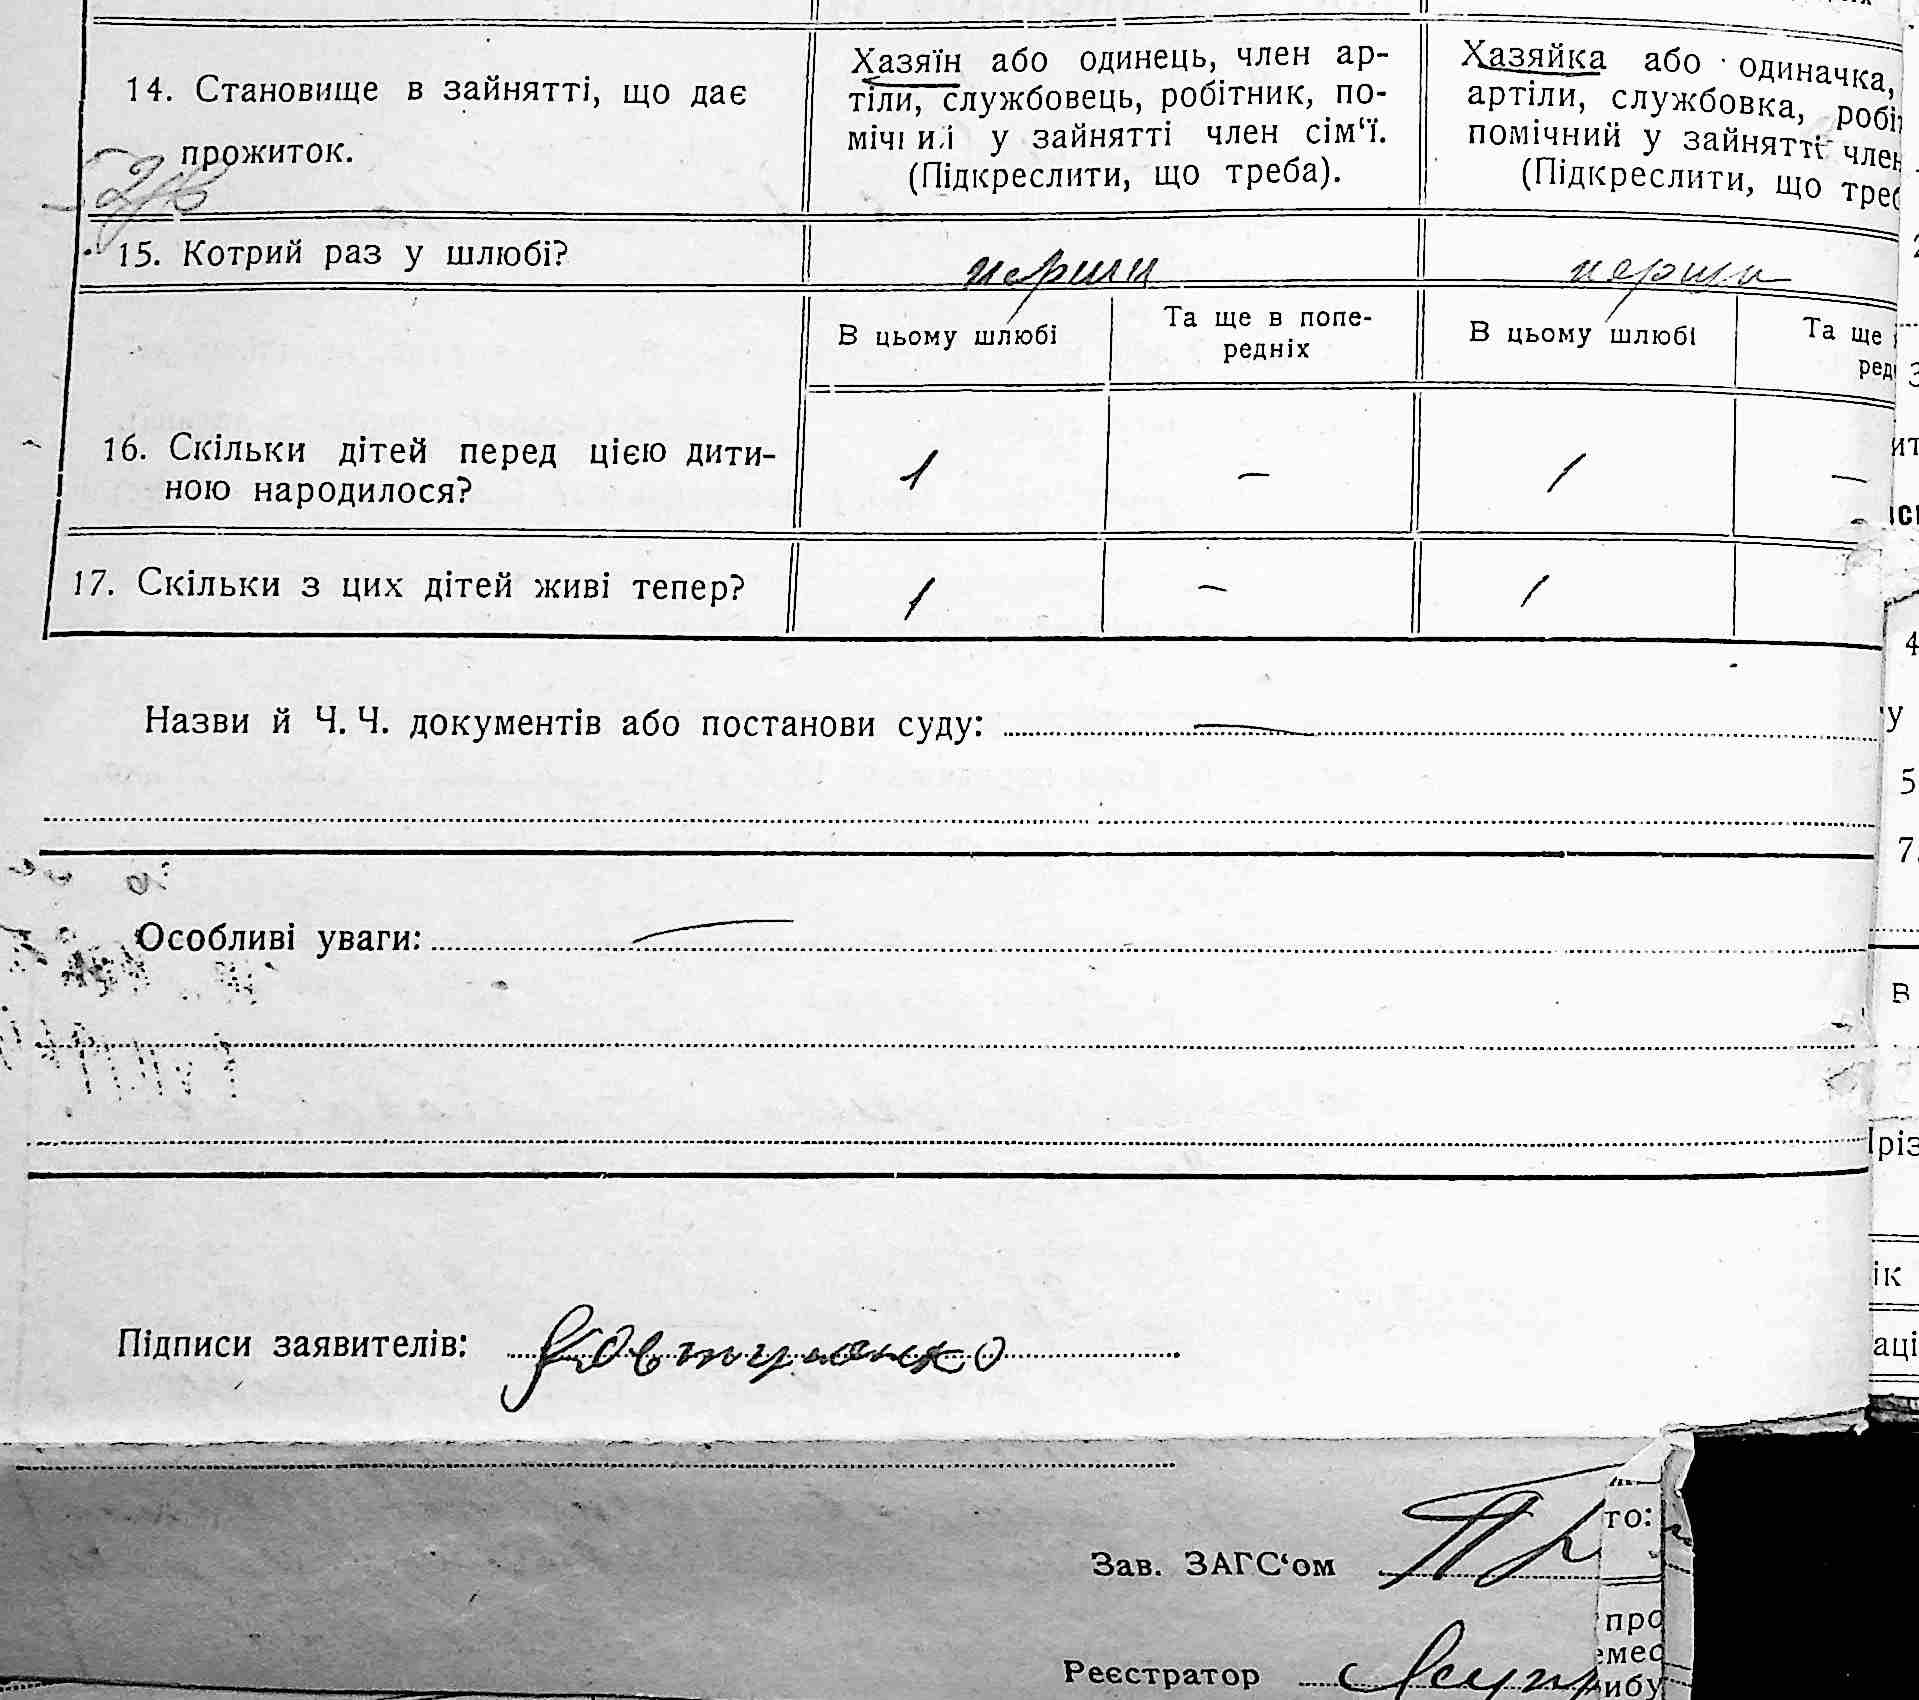 14. Становище в зайнятті, що дає
прожиток.
Хазяїн або одинець, член ар-
тіли, службовець, робітник, по-
мічний у зайнятті член сім‘ї.
(Підкреслити, що треба).
Хазяйка або одиначка,
артіли, службовка, робі
помічний у зайнятті член
(Підкреслити, що треб
15. Котрий раз у шлюбі?
перший
перший
В цьому шлюбі
Та ще в попе-
редніх
В цьому шлюбі
Та ще
ред
16. Скільки дітей перед цією дити-
ною народилося?
1 – 1 –
17. Скільки з цих дітей живі тепер?
1 – 1
Назви й Ч. Ч. документів або постанови суду: —
Особливі уваги: —
Підписи заявителів:
Зав. ЗАГС‘ом
Реєстратор